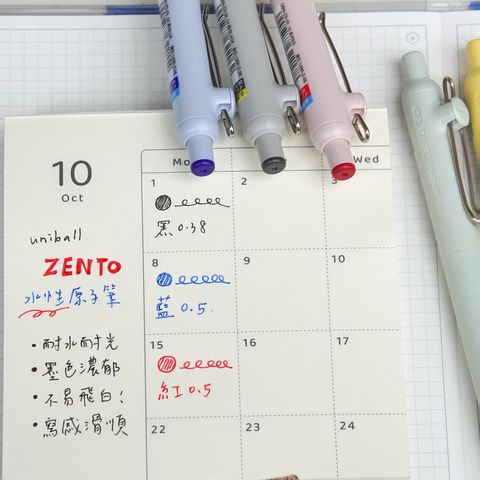 10
Oct
Mo
Wed
1
2
3
黑 0.38
uniball
ZENTO
水性原子筆
8
9
10
藍 0.5
・耐水耐光
・墨色濃郁
・不易飛白！
・寫感滑順
15
16
17
紅 0.5
22
23
24